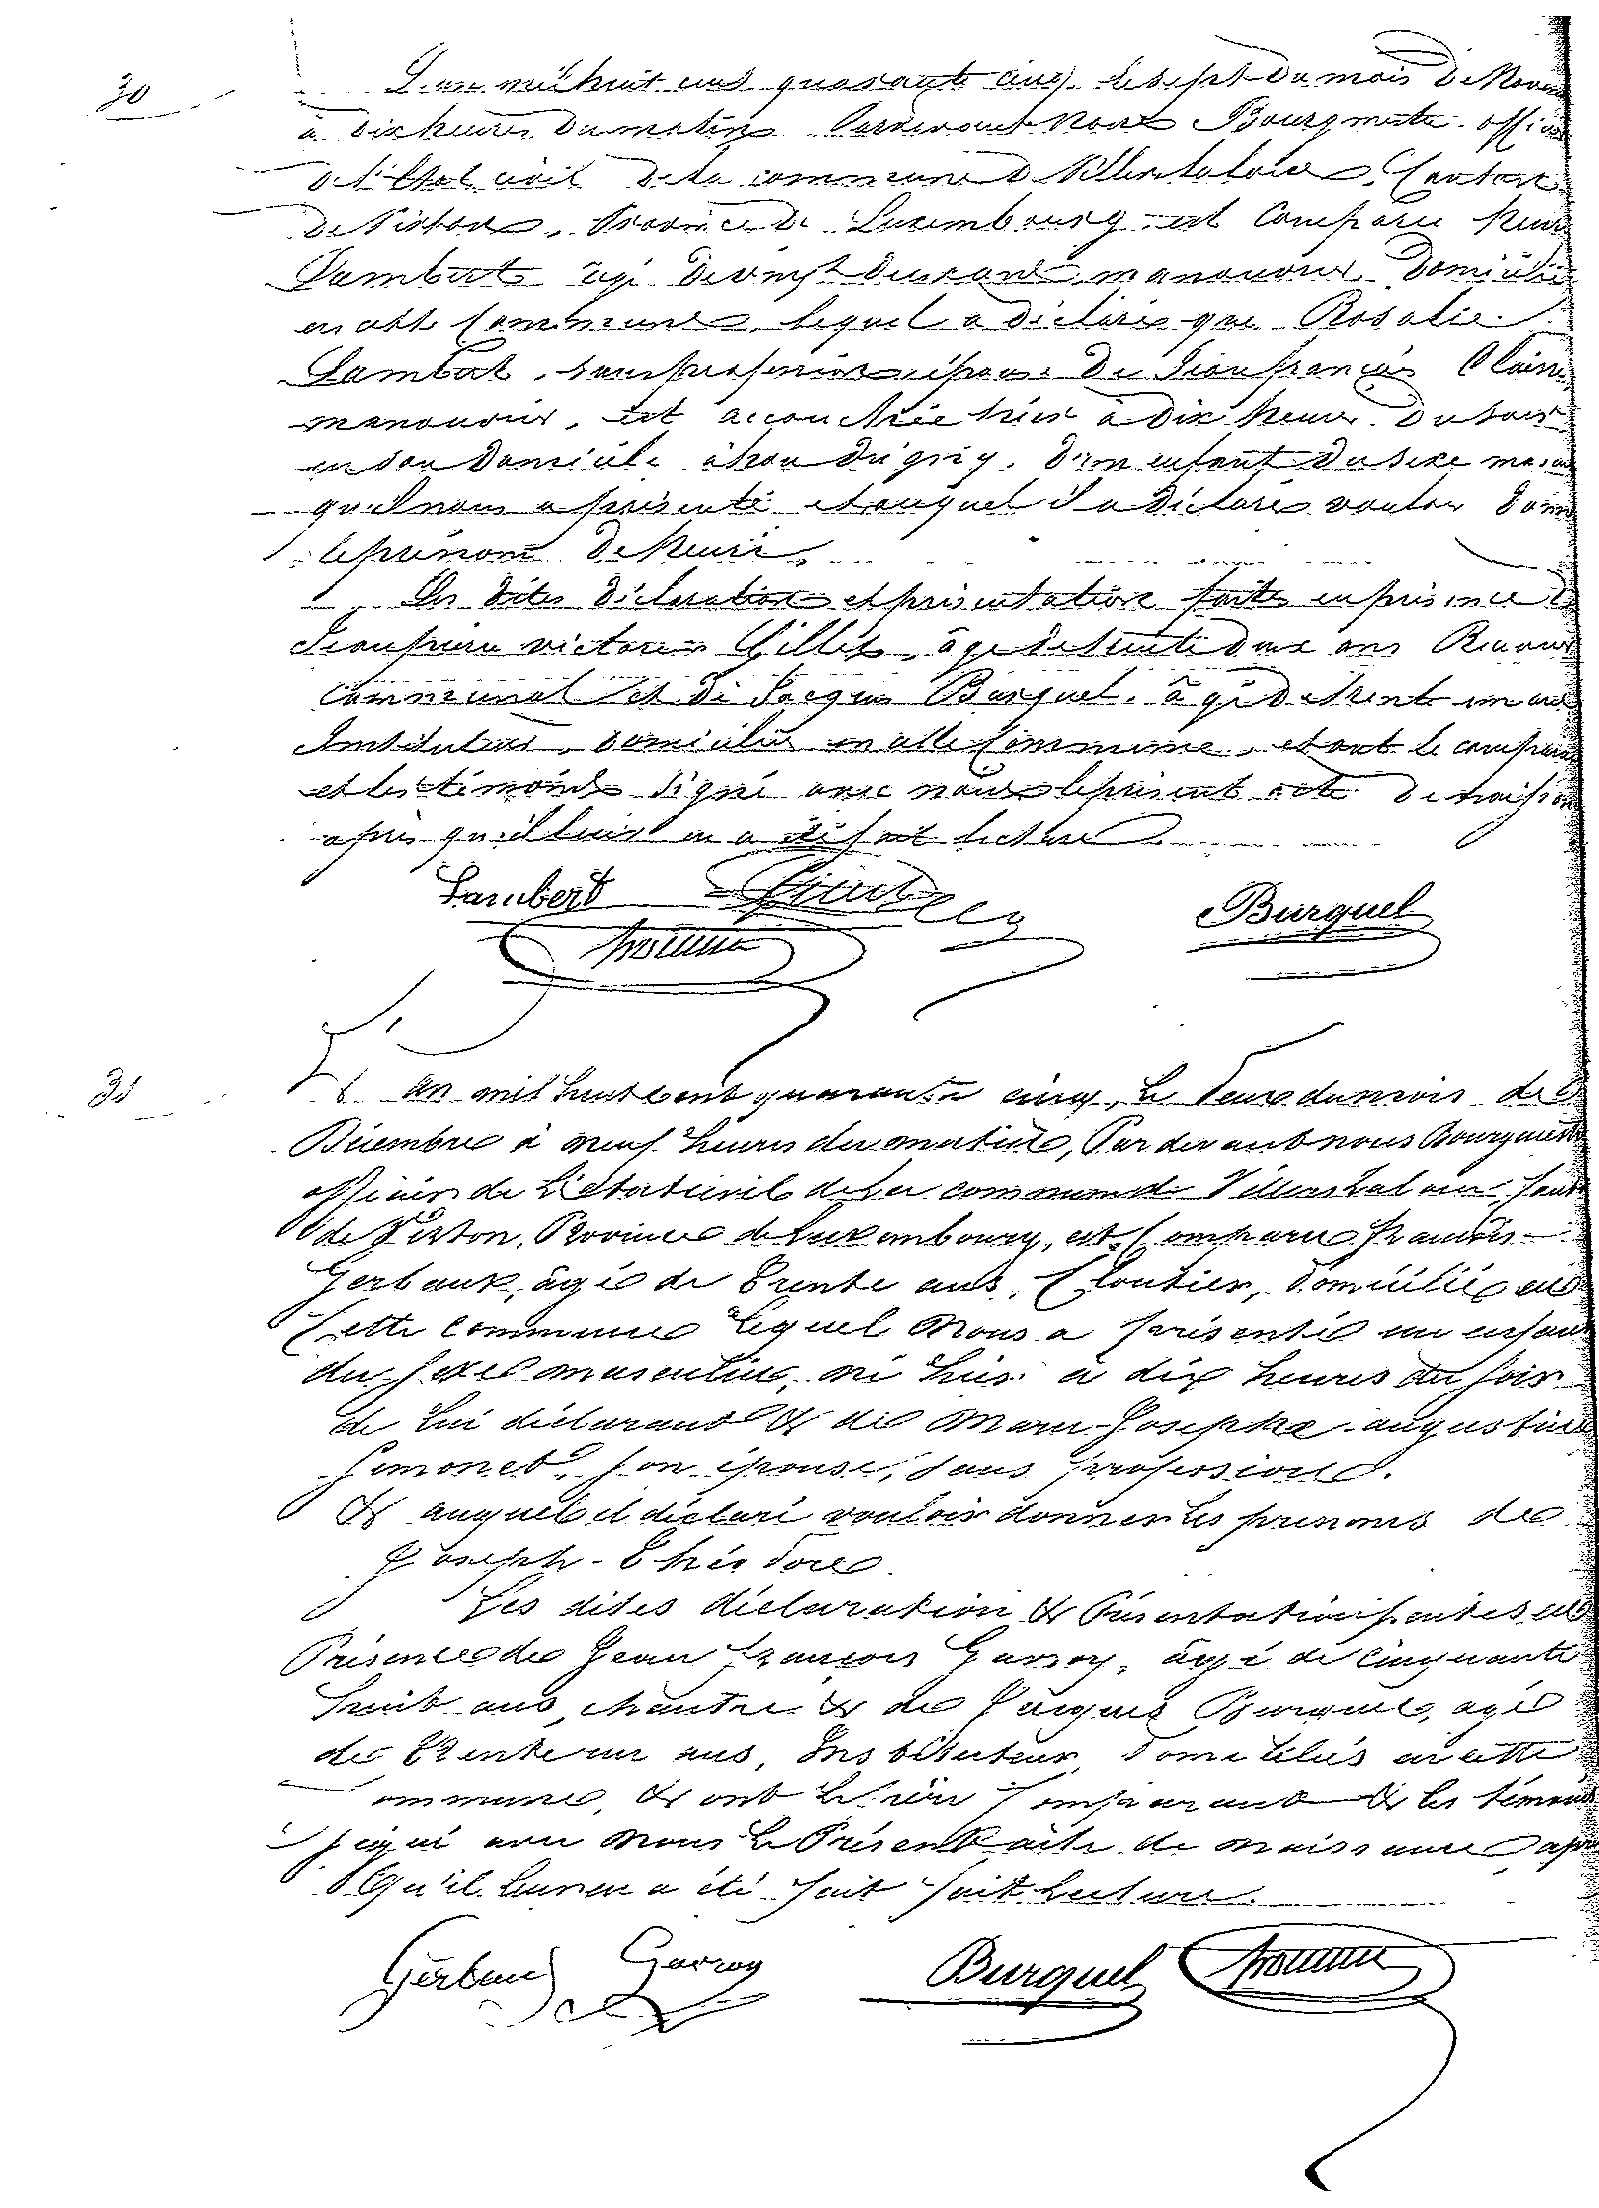 30
L'an mil huit cent quarante cinq, le sept du mois de Novem
à dix heures du matin Pardevant Nous Bourgmestre officier
de l'Etat civil de la commune de Villers la loue, Canton
de Virton, Province de Luxembourg est comparu Henri
Lambert âgé de vingt deux ans, manouvrier, domicilié
en cette commune, lequel a déclaré que Rosalie
Lambert, sans profession épouse de Jean françois
manouvrier, est accouchée hier à dix heures du soir
en son domicile à hou d'un enfant du sexe mascu
qu'il nous a présenté et auquel il a déclaré vouloir donn
le prénom de Henri.
Les dites déclaration et présentation faites en présence de
Jean pierre victorin Gillet, âgé de trente deux ans Receveur
communal et de Jacques Burquel, âgé de trente un ans
Instituteur, domiciliés en cette commune, et ont le comparant
et les témoins signé avec nous le présent acte de naissance
après qu'il leur en a été fait lecture.
Lambert Burquel
31
L'an mil huit cent quarante cinq, le deux du mois de
Décembre à neuf heures du matin, Par devant nous Bourgmestre
officier de L'état civil de la commune de Villers la loue, Cant
de Virton, Province de Luxembourg, est Comparu François
Gerbaux, âgé de trente ans, Cloutier, domicilié en
Cette commune Lequel Nous a présenté un enfant
du sexe masculin, né hier à dix heures du soir
de Lui déclarant & de Marie-Josephe-augustine
Simonet, son épouse, sans profession.
& auquel il déclaré vouloir donner les prenoms de
Joseph-Théodore.
Les dites déclaration & Présentation faites en
Présence de Jean François Gavroy, âgé de Cinquante
huit ans, chantre & de Jacques Burquel, agé
de trente un ans, Instituteur, domiciliés en cette
ommune, & ont Le Comparant & les témoins
signé avec Nous Le Présent acte de naissance après
Qu'il Leur en a été fait fait Lecture.
Gerbaux Gavroy Burquel